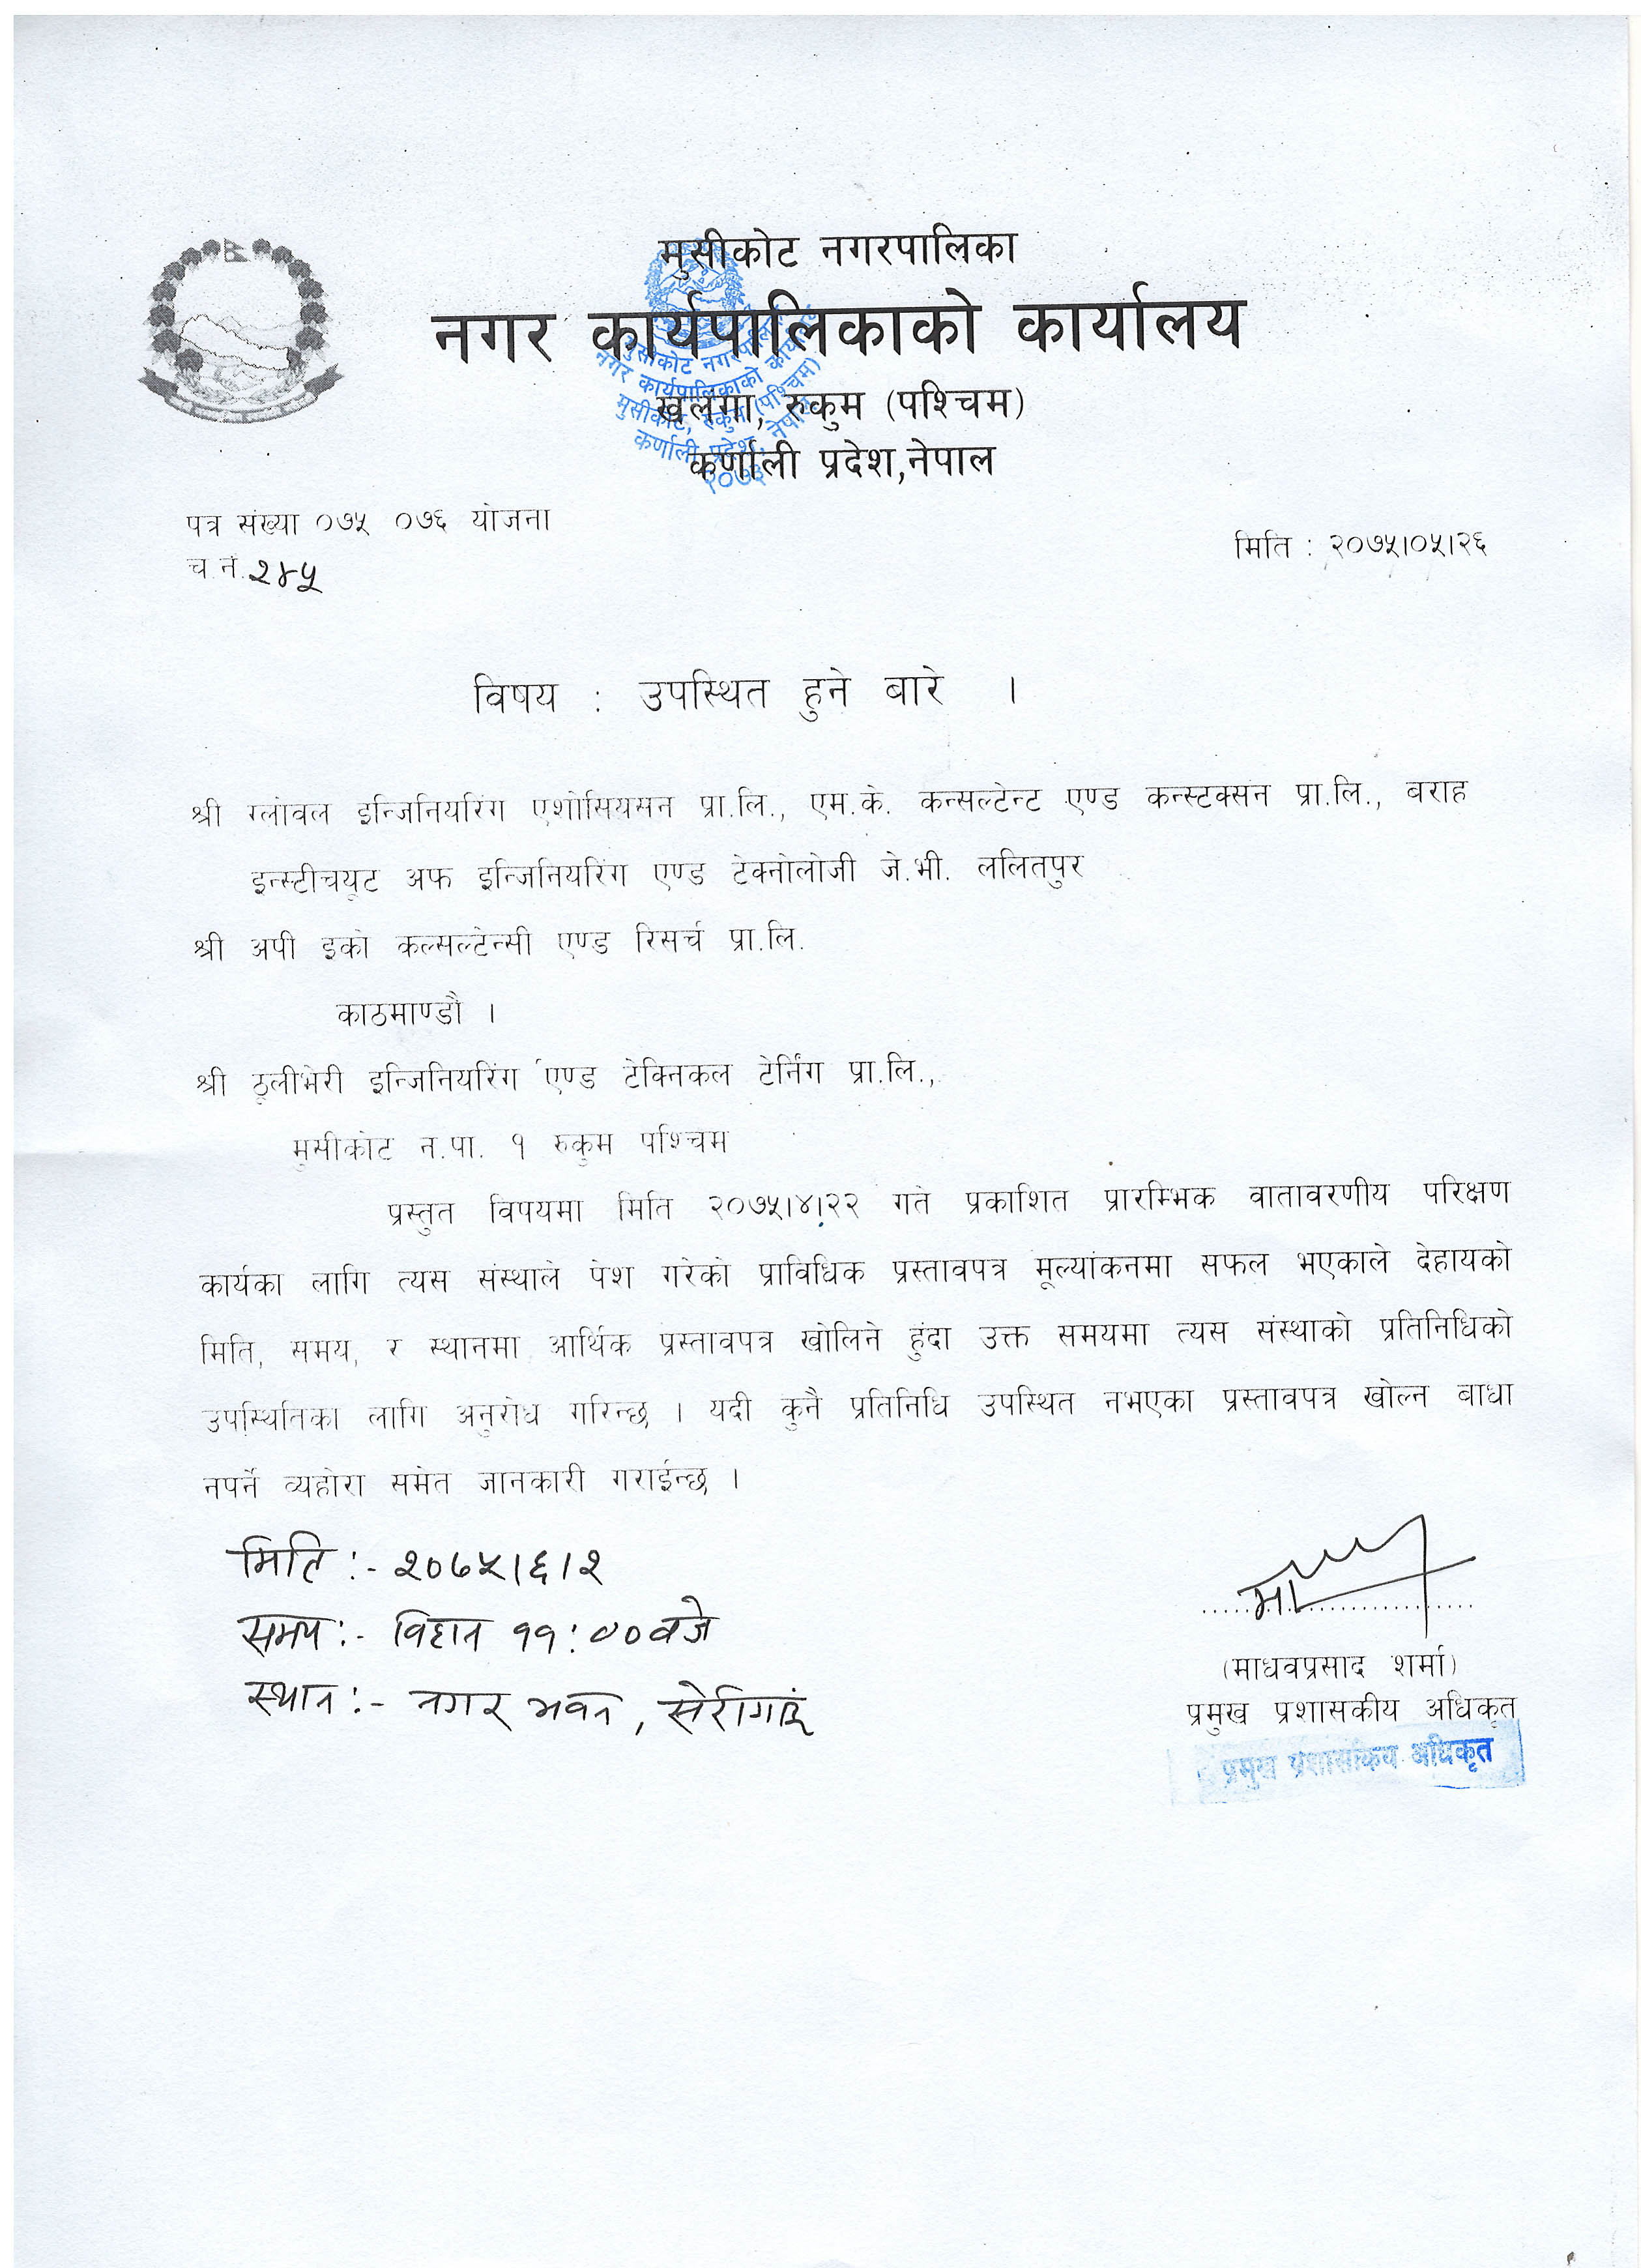 मुसीकोट नगरपालिका
नगर कार्यपालिकाको कार्यालय
खलंगा, रुकुम (पश्चिम)
कर्णाली प्रदेश,नेपाल
मुसीकोट नगरपालिका
नगर कार्यपालिकाको कार्यालय
मुसीकोट, रुकुम (पश्चिम)
कर्णाली प्रदेश, नेपाल
२०७३
पत्र संख्या ०७५ ०७६ योजना
मिति : २०७५।०५।२६
च.नं. २४५
विषय : उपस्थित हुने बारे ।
श्री ग्लोवल इन्जिनियरिंग एशोसियसन प्रा.लि., एम.के. कन्सल्टेन्ट एण्ड कन्स्टक्सन प्रा.लि., बराह
इन्स्टीचयूट अफ इन्जिनियरिंग एण्ड टेक्नोलोजी जे.भी. ललितपुर
श्री अपी इको कल्सल्टेन्सी एण्ड रिसर्च प्रा.लि.
काठमाण्डौ ।
श्री ठूलीभेरी इन्जिनियरिंग एण्ड टेक्निकल टेर्निंग प्रा.लि.,
मुसीकोट न.पा. १ रुकुम पश्चिम
प्रस्तुत विषयमा मिति २०७५।४।२२ गते प्रकाशित प्रारम्भिक वातावरणीय परिक्षण
कार्यका लागि त्यस संस्थाले पेश गरेको प्राविधिक प्रस्तावपत्र मूल्यांकनमा सफल भएकाले देहायको
मिति, समय, र स्थानमा आर्थिक प्रस्तावपत्र खोलिने हुंदा उक्त समयमा त्यस संस्थाको प्रतिनिधिको
उपस्थितिका लागि अनुरोध गरिन्छ । यदी कुनै प्रतिनिधि उपस्थित नभएका प्रस्तावपत्र खोल्न बाधा
नपर्ने व्यहोरा समेत जानकारी गराईन्छ ।
मिति :- २०७५।६।२
समय :- विहान ११:०० बजे
स्थान :- नगर भवन, सेरीगाउं
(माधवप्रसाद शर्मा)
प्रमुख प्रशासकीय अधिकृत
प्रमुख प्रशासकिय अधिकृत